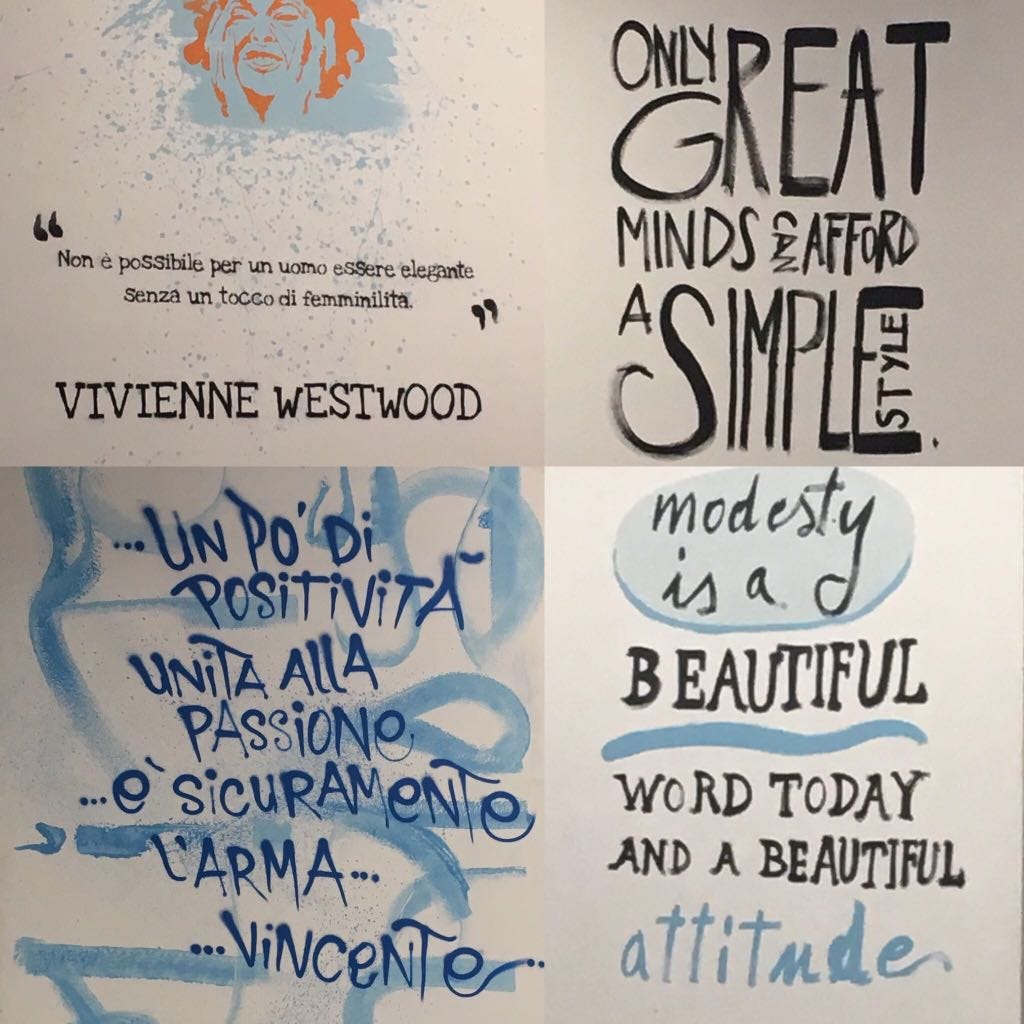 “
Non è possibile per un uomo essere elegante
senza un tocco di femminilità.
”
VIVIENNE WESTWOOD
ONLY GREAT
MINDS CAN AFFORD
A SIMPLE STYLE.
...UN PO' DI
POSITIVITÀ
UNITA ALLA
PASSIONE
...È SICURAMENTE
L'ARMA...
...VINCENTE..
modesty
is a
BEAUTIFUL
WORD TODAY
AND A BEAUTIFUL
attitude.